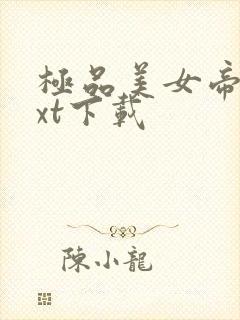 極品美女帝
xt下載
陳小龍